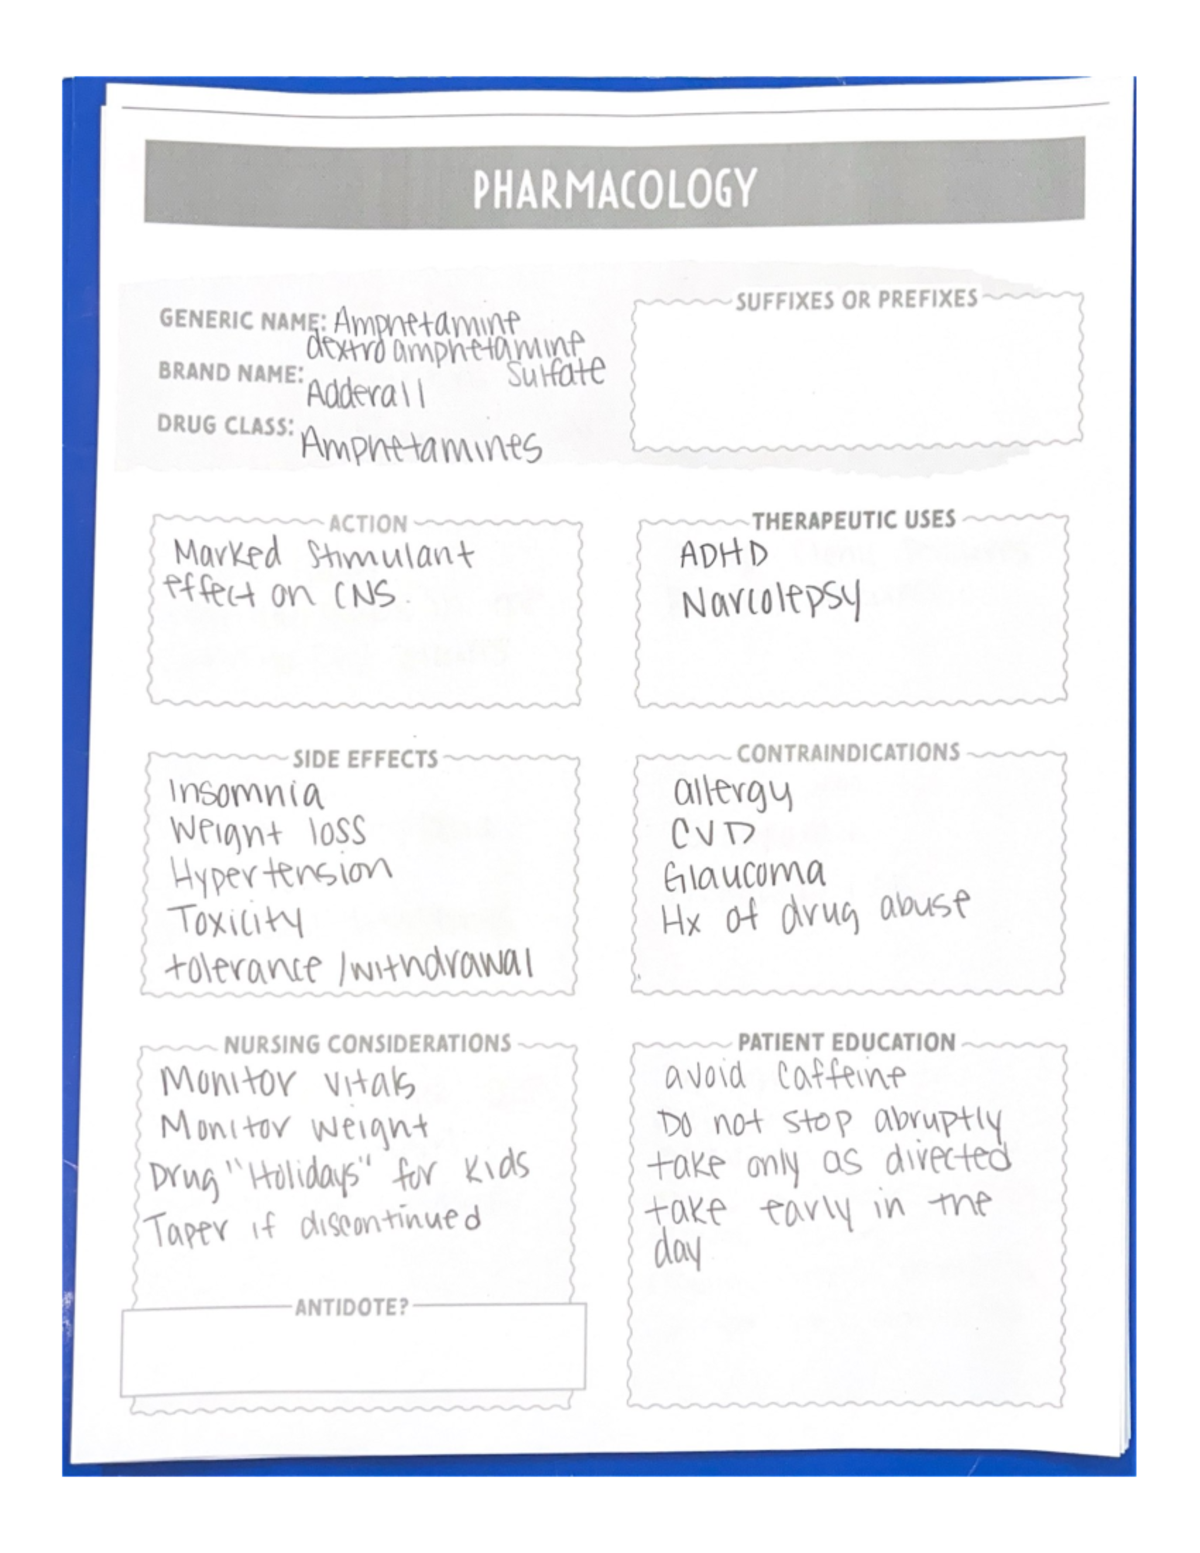 PHARMACOLOGY
GENERIC NAME: Amphetamine
dextroamphetamine
sulfate
BRAND NAME: Adderall
DRUG CLASS: Amphetamines
SUFFIXES OR PREFIXES
ACTION
Marked stimulant
effect on CNS.
THERAPEUTIC USES
ADHD
Narcolepsy
SIDE EFFECTS
Insomnia
Weight loss
Hypertension
Toxicity
tolerance/withdrawal
CONTRAINDICATIONS
allergy
CVD
Glaucoma
Hx of drug abuse
NURSING CONSIDERATIONS
Monitor vitals
Monitor weight
Drug "Holidays" for kids
Taper if discontinued
ANTIDOTE?
PATIENT EDUCATION
avoid caffeine
Do not stop abruptly
take only as directed
take early in the
day